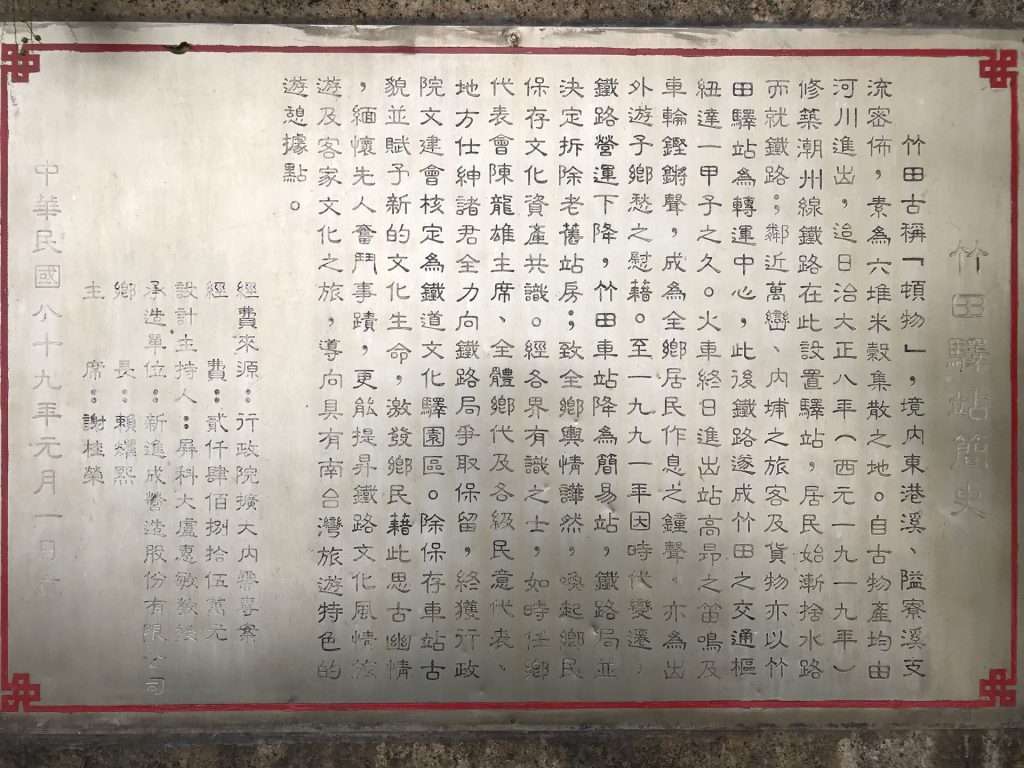 竹田驛站簡史
竹田古稱「頓物」，境內東港溪、隘寮溪支
流密佈，素為六堆米穀集散之地。自古物產均由
河川進出，迨日治大正八年（西元一九一九年）
修築潮州線鐵路在此設置驛站，居民始漸捨水路
而就鐵路；鄰近萬巒、內埔之旅客及貨物亦以竹
田驛站為轉運中心，此後鐵路遂成竹田之交通樞
紐達一甲子之久。火車終日進出站高昂之笛鳴及
車輪鏗鏘聲，成為全鄉居民作息之鐘聲。亦為出
外遊子鄉愁之慰藉。至一九九一年因時代變遷，
鐵路營運下降，竹田車站降為簡易站，鐵路局並
決定拆除老舊站房；致全鄉輿情譁然，喚起鄉民
保存文化資產共識。經各界有識之士，如時任鄉
代表會陳龍雄主席、全體鄉代及各級民意代表、
地方仕紳諸君全力向鐵路局爭取保留，終獲行政
院文建會核定為鐵道文化驛園區。除保存車站古
貌並賦予新的文化生命，激發鄉民藉此思古幽情
，緬懷先人奮鬥事蹟，更能提昇鐵路文化風情
遊及客家文化之旅，導向具有南台灣旅遊特色的
遊憩據點。
經費來源：行政院擴大內需專案
經　費：貳仟肆佰捌拾伍萬元
設計主持人：屏科大盧惠敏教授
承造單位：新進成營造股份有限公司
鄉　長：賴熙
主　席：謝桂榮
中華民國八十九年元月一日